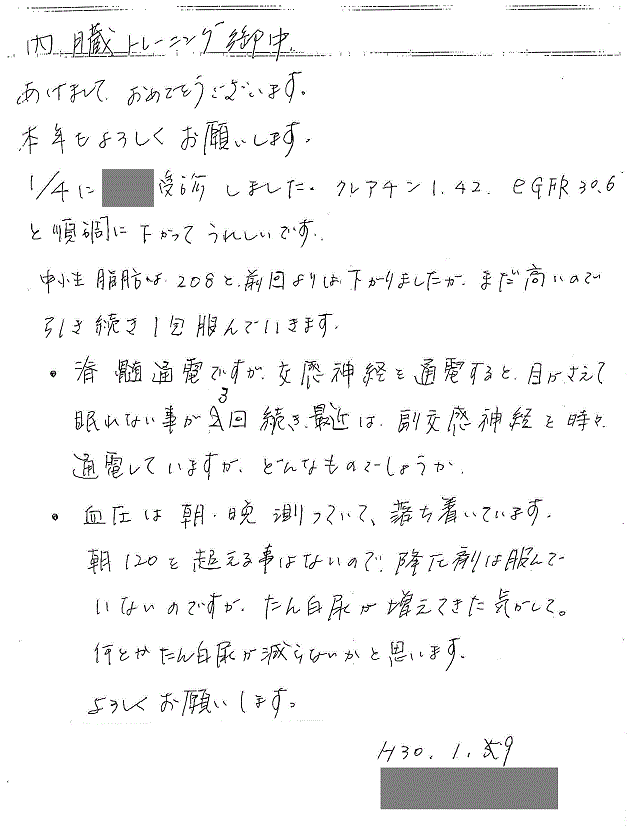 内臓トレーニング御中
あけまして、おめでとうございます。
本年もよろしくお願いします。
1/4に受診しました。クレアチン1.42. eGFR 30.6
と順調に下がってうれしいです。
中性脂肪は、208と、前回よりは下がりましたが、まだ高いので
引き続き1包服んでいきます。
・脊髄通電ですが、交感神経を通電すると、目がさえて
眠れない事が3回続き、最近は、副交感神経を時々
通電していますが、どんなものでしょうか。
・血圧は朝・晩測っていて、落ち着いています。
朝120を超える事はないので、降圧剤は服んで
いないのですが、たん白尿が増えてきた気がして。
何とかたん白尿が減らないかと思います。
よろしくお願いします。
H30. 1. 9